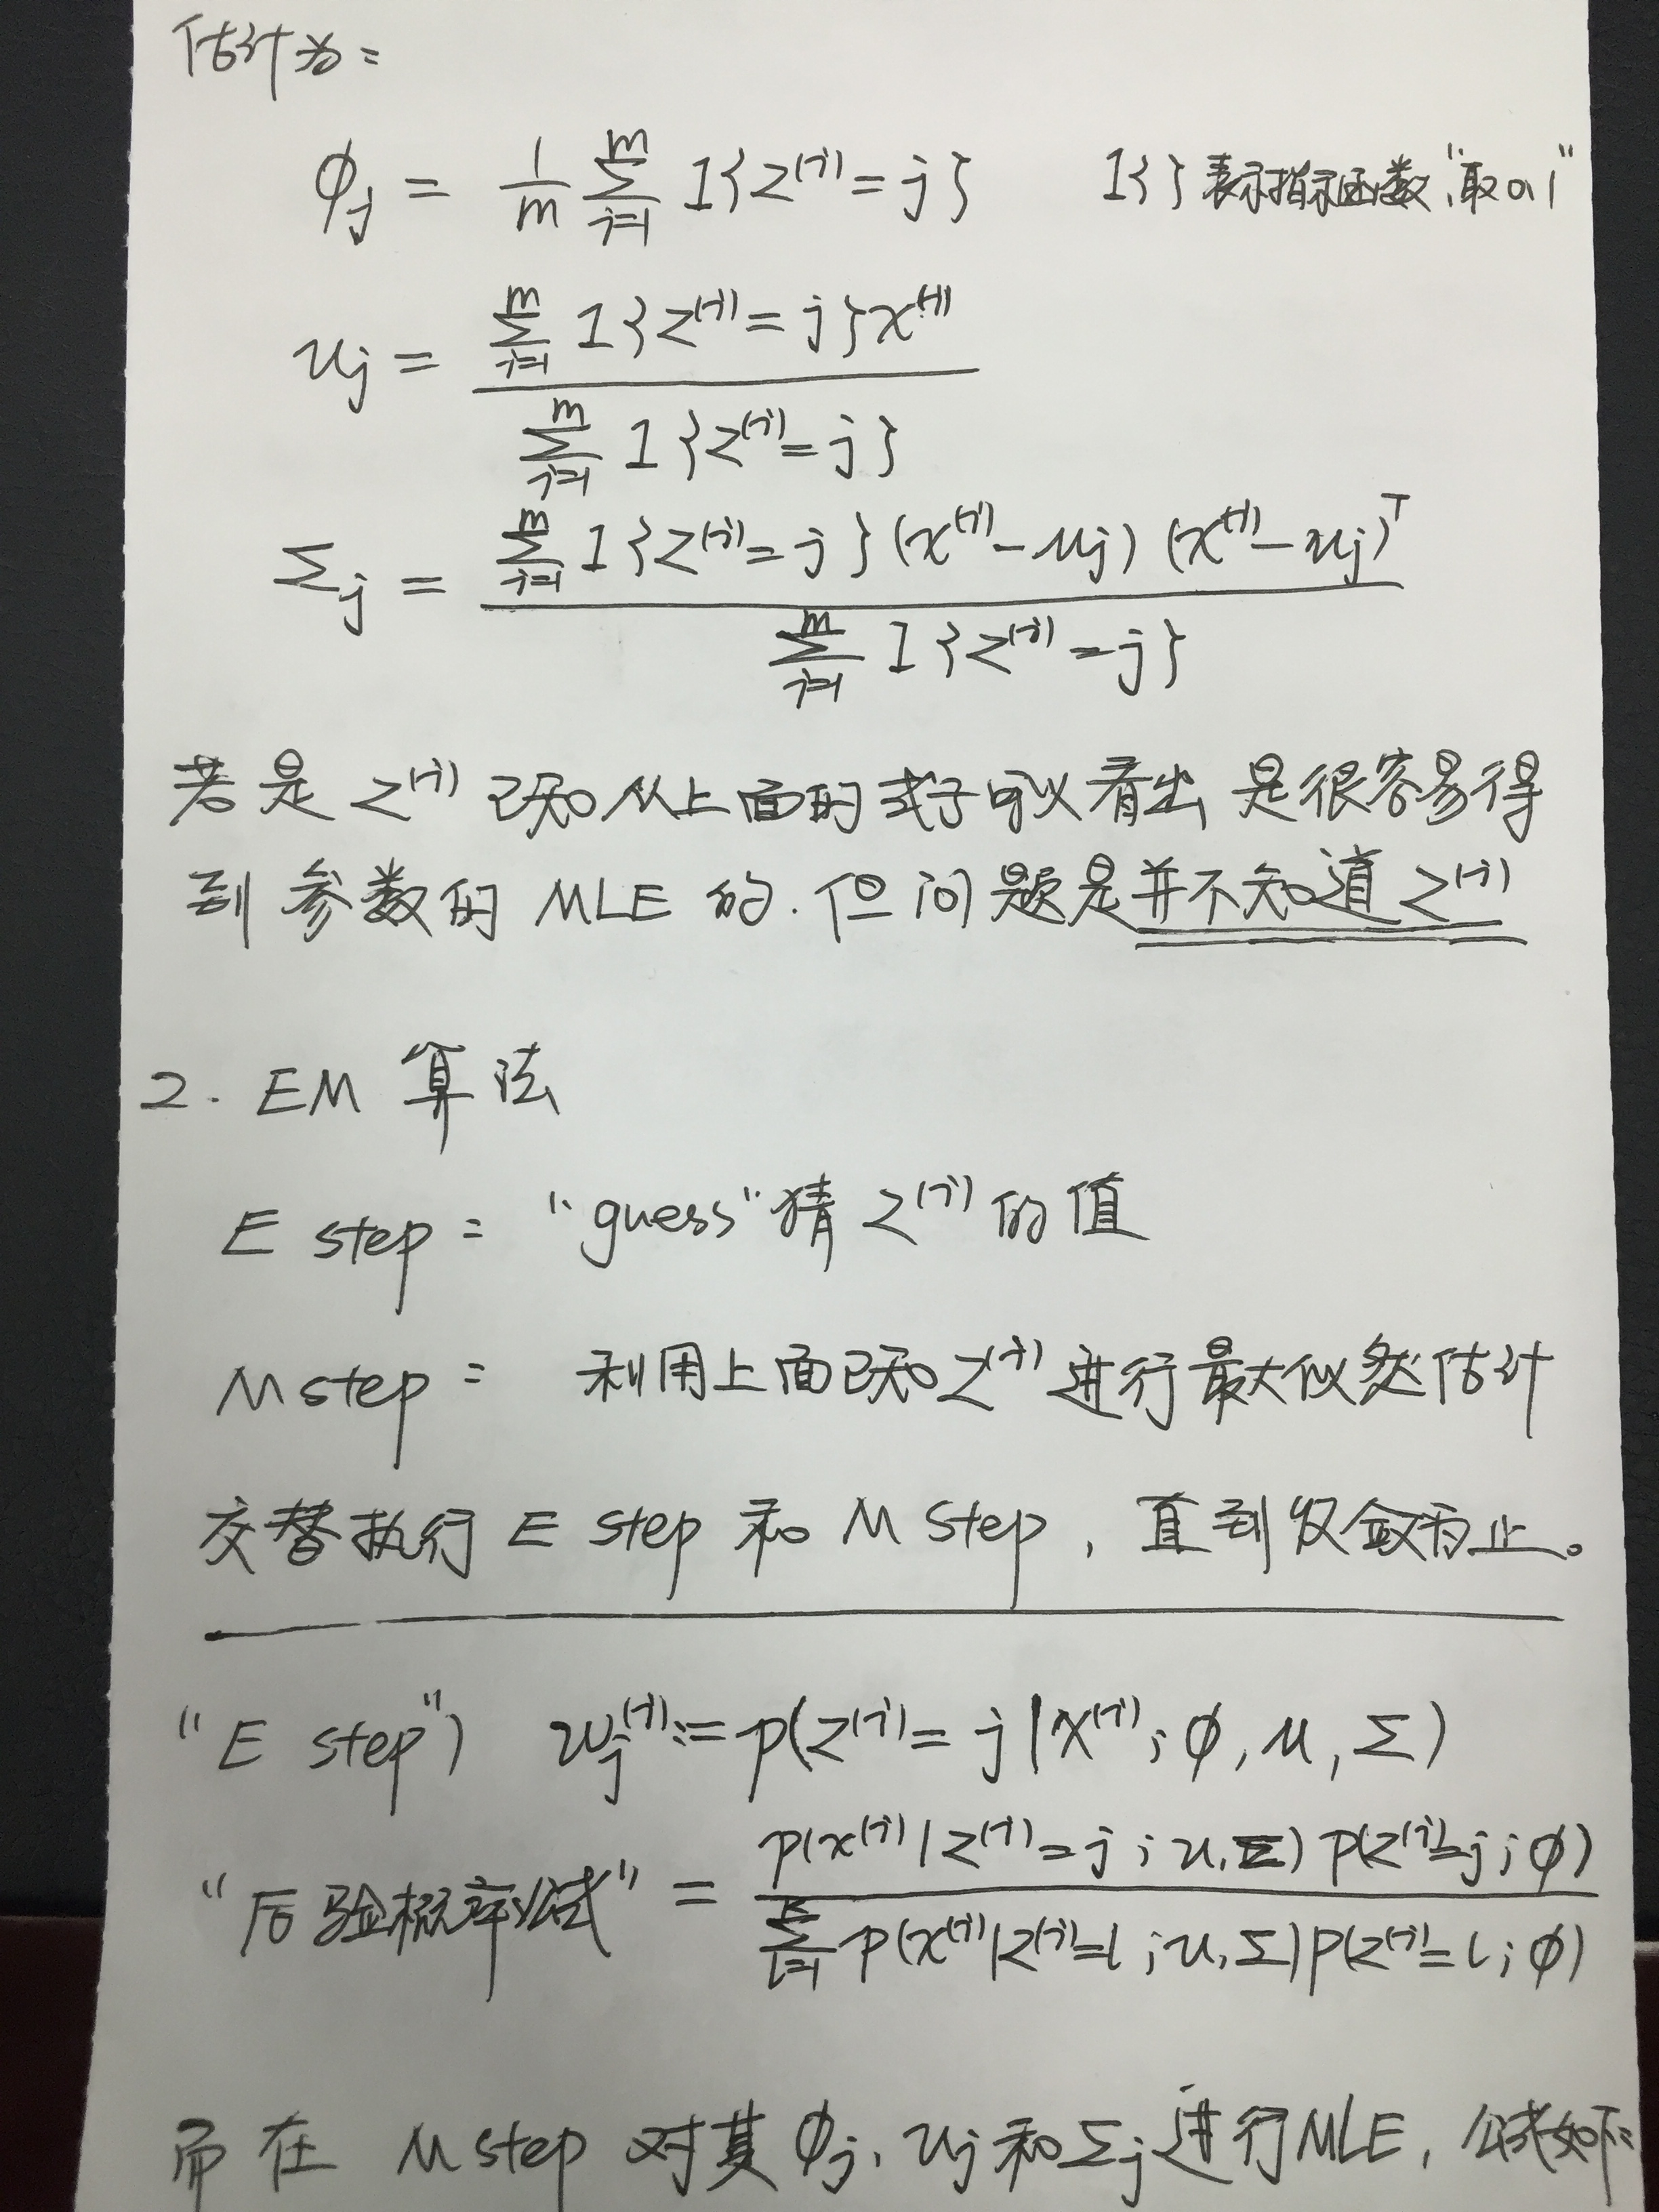 估计为:
φj = 1/m ∑_{i=1}^{m} 1{z^(i) = j}    1{ } 表示指示函数,"取0,1"
uj = ∑_{i=1}^{m} 1{z^(i) = j}x^(i) / ∑_{i=1}^{m} 1{z^(i) = j}
Σj = ∑_{i=1}^{m} 1{z^(i) = j}(x^(i) - uj)(x^(i) - uj)^T / ∑_{i=1}^{m} 1{z^(i) = j}
若是 z^(i) 已知 从上面的式子可以看出 是很容易得
到参数的 MLE 的. 但问题是并不知道 z^(i)
2. EM 算法
E step: "guess"猜 z^(i) 的值
M step: 利用上面已知 z^(i) 进行最大似然估计
交替执行 E step 和 M step, 直到收敛为止。
"E step") wj^(i) := p(z^(i) = j | x^(i); φ, u, Σ)
"后验概率" = p(x^(i) | z^(i) = j; u, Σ) p(z^(i) = j; φ) / ∑_{l=1}^{k} p(x^(i) | z^(i) = l; u, Σ) p(z^(i) = l; φ)
而在 M step 对其 φj, uj 和 Σj 进行MLE, 公式如下: